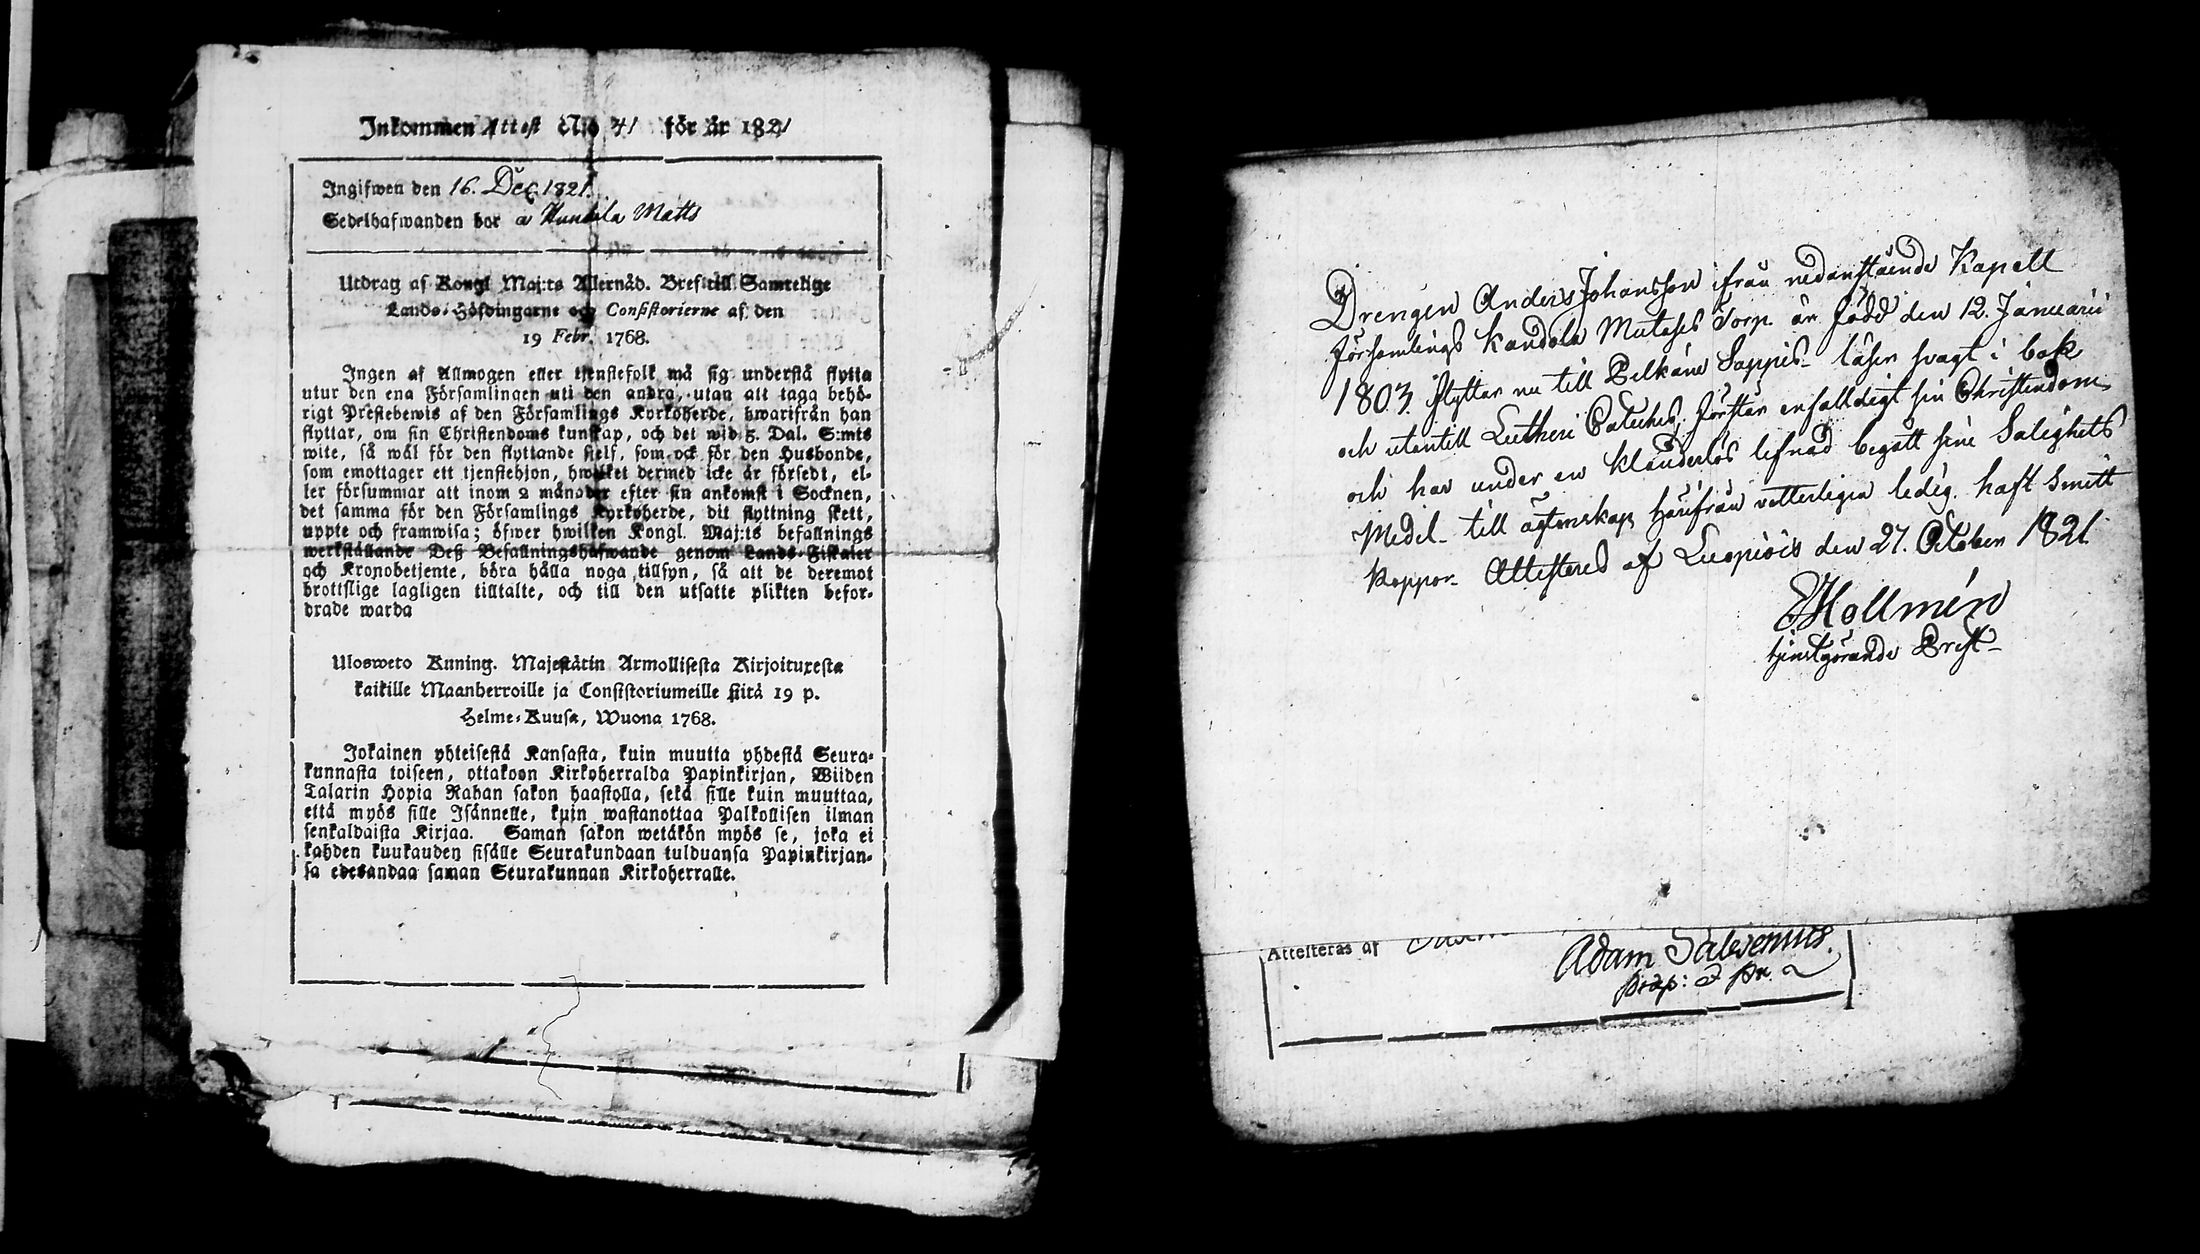 Inkommen Attest N:o 41 för år 1821
Ingifwen den 16. Dec. 1821.
Sedelhafwanden bor a Kundola Matts
Utdrag af Kongl Maj:ts Allernåd. Bref till Samtelige
Lands-Höfdingarne och Consistorierne af den
19 Febr. 1768.
Ingen af Allmogen eller tjenstefolk må sig understå flytta
utur den ena Församlingen uti den andra, utan att taga behö-
rigt Prestebewis af den Församlings Kyrkoherde, hwarifrån han
flyttar, om sin Christendoms kunskap, och det wid 5. Dal. S:mts
wite, så wäl för den flyttande sjelf, som ock för den Husbonde,
som emottager ett tjenstehjon, hwilket dermed icke är försedt, el-
ler försummar att inom 2 månader efter sin ankomst i Socknen,
det samma för den Församlings Kyrkoherde, dit flyttning skett,
uppte och framwisa; öfwer hwilken Kongl. Maj:ts befallnings
werkställande Deß Befallningshafwande genom Lands-Fiskaler
och Kronobetjente, böra hålla noga tillsyn, så att de deremot
brottslige lagligen tilltalte, och till den utsatte plikten befor-
drade warda
Ulosweto Kuning. Majestätin Armollisesta Kirjoituxesta
kaikille Maanherroille ja Consistoriumeille siitä 19 p.
Helme-Kuusa, Wuona 1768.
Jokainen yhteisestä Kansasta, kuin muutta yhdestä Seura-
kunnasta toiseen, ottakoon Kirkoherralda Papinkirjan, Wiiden
Talarin Hopia Rahan sakon haastolla, sekä sille kuin muuttaa,
että myös sille Isännelle, kuin wastanottaa Palkollisen ilman
senkaldaista Kirjaa. Saman sakon wetäkön myös se, joka ei
kahden kuukauden sisälle Seurakundaan tulduansa Papinkirjan-
sa edesandaa saman Seurakunnan Kirkoherralle.
Drengen Anders Johansson ifrån nedanstående Kapell
Församlings Kandola Torp är född den 12. Januarii
1803. flyttar nu till Pelkäne Sappis - läser svagt i bok
och utantill Lutheri Cateches, förstår enfalldigt sin Christendom
och har under en klanderlös lefnad begått sine Salighets
Medel - till ägtenskap härifrån vetterligen ledig. haft Smitt
Koppor - Attesteras af Luopiois den 27. October 1821
Hollmén
tjenstgörande Prest -
Attesteras af
Adam Salvenius.